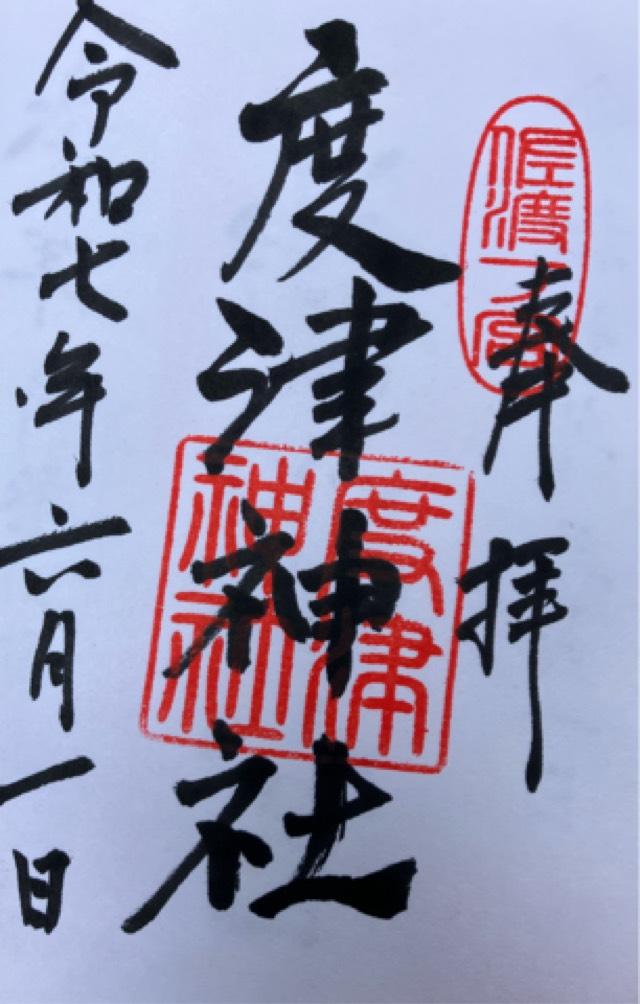 奉拝
佐渡一宮
度津神社
度津神社
令和七年六月一日